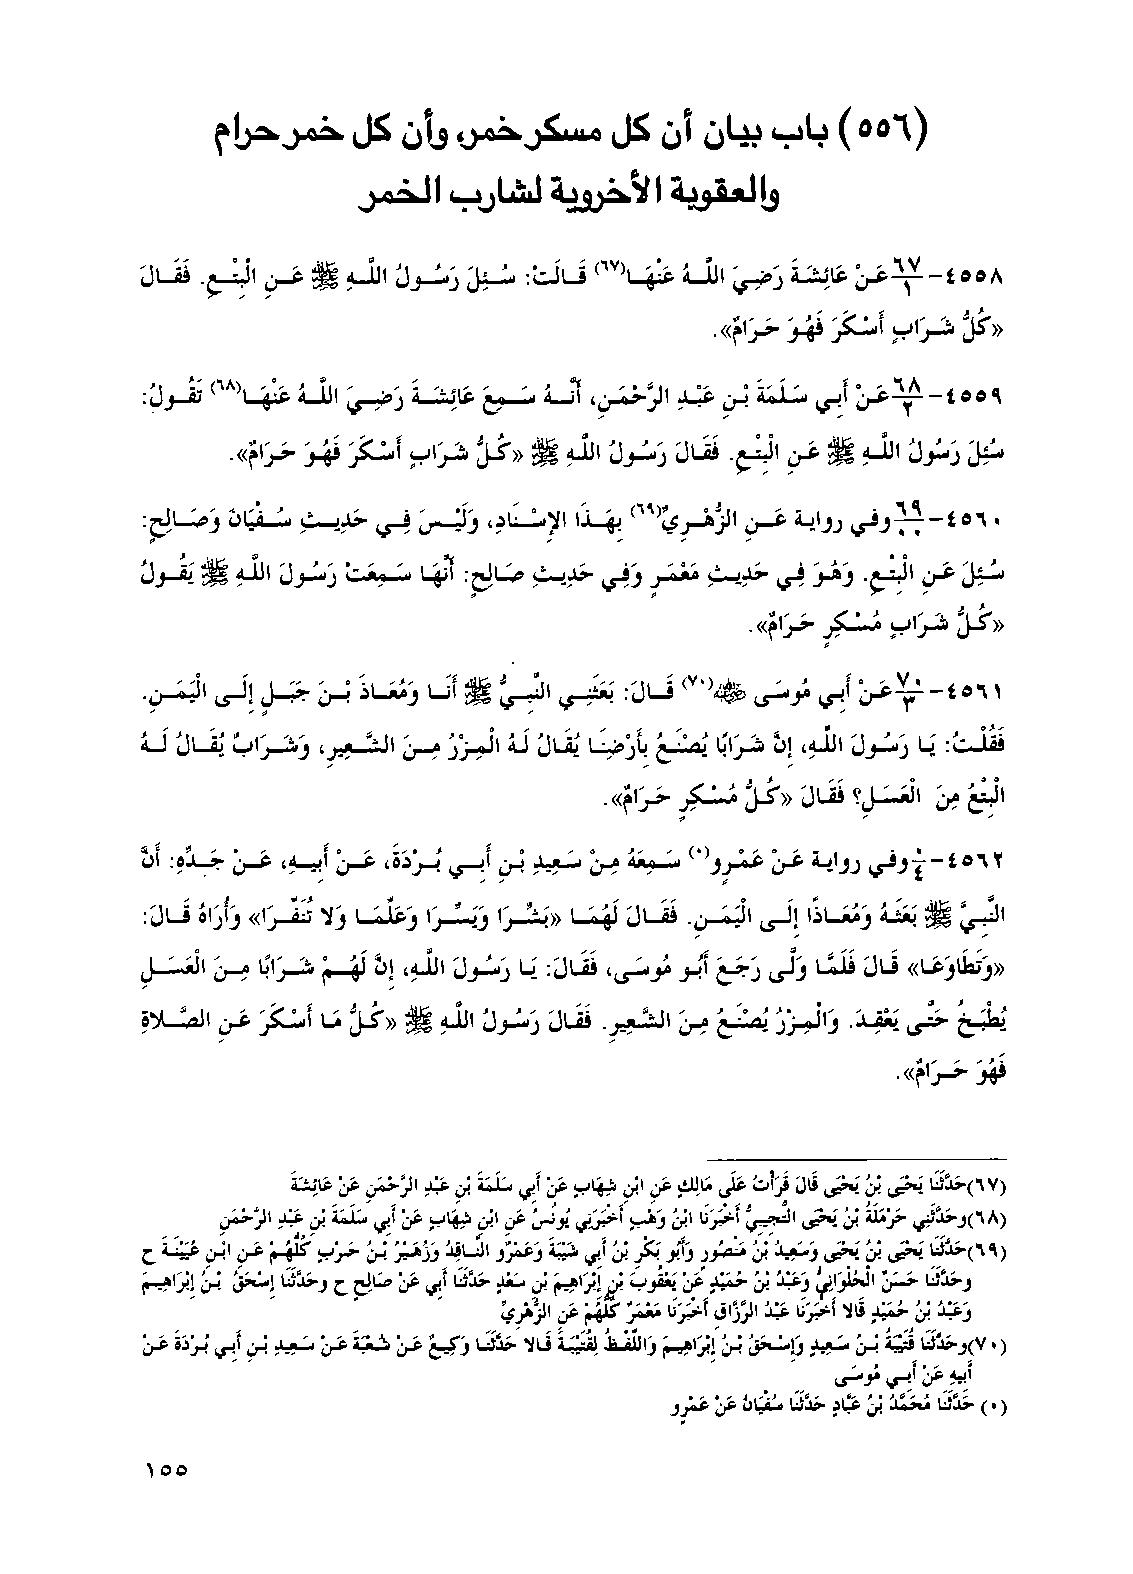 (٥٥٦) باب بيان أن كل مسكر خمر، وأن كل خمر حرام
والعقوبة الأخروية لشارب الخمر
٤٥٥٨- ٦٧/١ عَنْ عَائِشَةَ رَضِيَ اللَّهُ عَنْهَا(٦٧) قَالَتْ: سُئِلَ رَسُولُ اللَّهِ ﷺ عَنِ الْبِتْعِ. فَقَالَ
«كُلُّ شَرَابٍ أَسْكَرَ فَهُوَ حَرَامٌ».
٤٥٥٩- ٦٨/٢ عَنْ أَبِي سَلَمَةَ بْنِ عَبْدِ الرَّحْمَنِ، أَنَّهُ سَمِعَ عَائِشَةَ رَضِيَ اللَّهُ عَنْهَا(٦٨) تَقُولُ:
سُئِلَ رَسُولُ اللَّهِ ﷺ عَنِ الْبِتْعِ. فَقَالَ رَسُولُ اللَّهِ ﷺ «كُلُّ شَرَابٍ أَسْكَرَ فَهُوَ حَرَامٌ».
٤٥٦٠- ٦٩/٠٠ وفي رواية عَنِ الزُّهْرِيِّ(٦٩) بِهَذَا الإِسْنَادِ، وَلَيْسَ فِي حَدِيثِ سُفْيَانَ وَصَالِحٍ:
سُئِلَ عَنِ الْبِتْعِ. وَهُوَ فِي حَدِيثِ مَعْمَرٍ وَفِي حَدِيثِ صَالِحٍ: أَنَّهَا سَمِعَتْ رَسُولَ اللَّهِ ﷺ يَقُولُ
«كُلُّ شَرَابٍ مُسْكِرٍ حَرَامٌ».
٤٥٦١- ٧٠/٣ عَنْ أَبِي مُوسَى ﷺ(٧٠) قَالَ: بَعَثَنِي النَّبِيُّ ﷺ أَنَا وَمُعَاذَ بْنَ جَبَلٍ إِلَى الْيَمَنِ.
فَقُلْتُ: يَا رَسُولَ اللَّهِ، إِنَّ شَرَابًا يُصْنَعُ بِأَرْضِنَا يُقَالُ لَهُ الْمِزْرُ مِنَ الشَّعِيرِ، وَشَرَابٌ يُقَالُ لَهُ
الْبِتْعُ مِنَ الْعَسَلِ؟ فَقَالَ «كُلُّ مُسْكِرٍ حَرَامٌ».
٤٥٦٢- ٠/٤ وفي رواية عَنْ عَمْرٍو(٠) سَمِعَهُ مِنْ سَعِيدِ بْنِ أَبِي بُرْدَةَ، عَنْ أَبِيهِ، عَنْ جَدِّهِ: أَنَّ
النَّبِيَّ ﷺ بَعَثَهُ وَمُعَاذًا إِلَى الْيَمَنِ. فَقَالَ لَهُمَا «بَشِّرَا وَيَسِّرَا وَعَلِّمَا وَلا تُنَفِّرَا» وَأُرَاهُ قَالَ:
«وَتَطَاوَعَا» قَالَ فَلَمَّا وَلَّى رَجَعَ أَبُو مُوسَى، فَقَالَ: يَا رَسُولَ اللَّهِ، إِنَّ لَهُمْ شَرَابًا مِنَ الْعَسَلِ
يُطْبَخُ حَتَّى يَعْقِدَ. وَالْمِزْرُ يُصْنَعُ مِنَ الشَّعِيرِ. فَقَالَ رَسُولُ اللَّهِ ﷺ «كُلُّ مَا أَسْكَرَ عَنِ الصَّلاةِ
فَهُوَ حَرَامٌ».
(٦٧)حَدَّثَنَا يَحْيَى بْنُ يَحْيَى قَالَ قَرَأْتُ عَلَى مَالِكٍ عَنِ ابْنِ شِهَابٍ عَنْ أَبِي سَلَمَةَ بْنِ عَبْدِ الرَّحْمَنِ عَنْ عَائِشَةَ
(٦٨)وحَدَّثَنِي حَرْمَلَةُ بْنُ يَحْيَى التُّجِيبِيُّ أَخْبَرَنَا ابْنُ وَهْبٍ أَخْبَرَنِي يُونُسُ عَنِ ابْنِ شِهَابٍ عَنْ أَبِي سَلَمَةَ بْنِ عَبْدِ الرَّحْمَنِ
(٦٩)حَدَّثَنَا يَحْيَى بْنُ يَحْيَى وَسَعِيدُ بْنُ مَنْصُورٍ وَأَبُو بَكْرِ بْنُ أَبِي شَيْبَةَ وَعَمْرٌو النَّاقِدُ وَزُهَيْرُ بْنُ حَرْبٍ كُلُّهُمْ عَنِ ابْنِ عُيَيْنَةَ ح
وحَدَّثَنَا حَسَنٌ الْحُلْوَانِيُّ وَعَبْدُ بْنُ حُمَيْدٍ عَنْ يَعْقُوبَ بْنِ إِبْرَاهِيمَ بْنِ سَعْدٍ حَدَّثَنَا أَبِي عَنْ صَالِحٍ ح وحَدَّثَنَا إِسْحَقُ بْنُ إِبْرَاهِيمَ
وَعَبْدُ بْنُ حُمَيْدٍ قَالا أَخْبَرَنَا عَبْدُ الرَّزَّاقِ أَخْبَرَنَا مَعْمَرٌ كُلُّهُمْ عَنِ الزُّهْرِيِّ
(٧٠)وحَدَّثَنَا قُتَيْبَةُ بْنُ سَعِيدٍ وَإِسْحَقُ بْنُ إِبْرَاهِيمَ وَاللَّفْظُ لِقُتَيْبَةَ قَالا حَدَّثَنَا وَكِيعٌ عَنْ شُعْبَةَ عَنْ سَعِيدِ بْنِ أَبِي بُرْدَةَ عَنْ
أَبِيهِ عَنْ أَبِي مُوسَى
(٠) حَدَّثَنَا مُحَمَّدُ بْنُ عَبَّادٍ حَدَّثَنَا سُفْيَانُ عَنْ عَمْرٍو
١٥٥